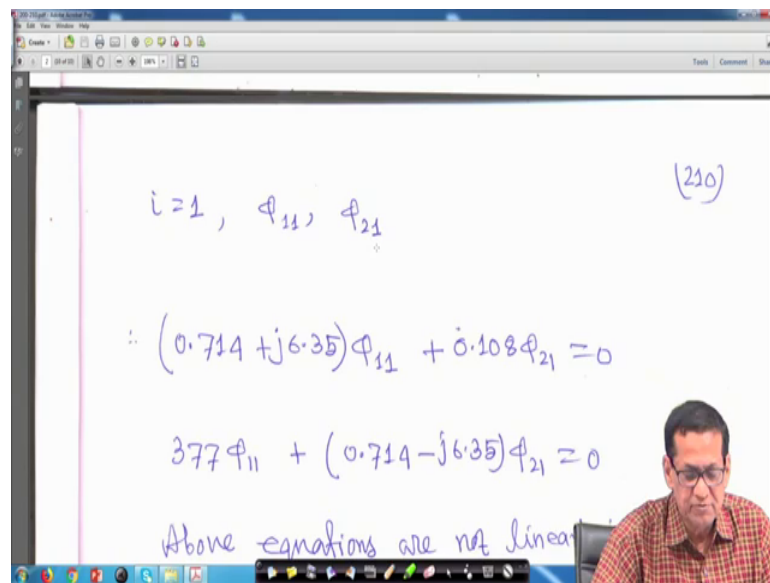 200-250.pdf - Adobe Acrobat Pro
File Edit View Window Help
Create
Tools Comment Share
(210)
i = 1 , φ11, φ21
∴ (0.714 + j6.35) φ11 + 0.108 φ21 = 0
377 φ11 + (0.714 - j6.35) φ21 = 0
Above equations are not linear